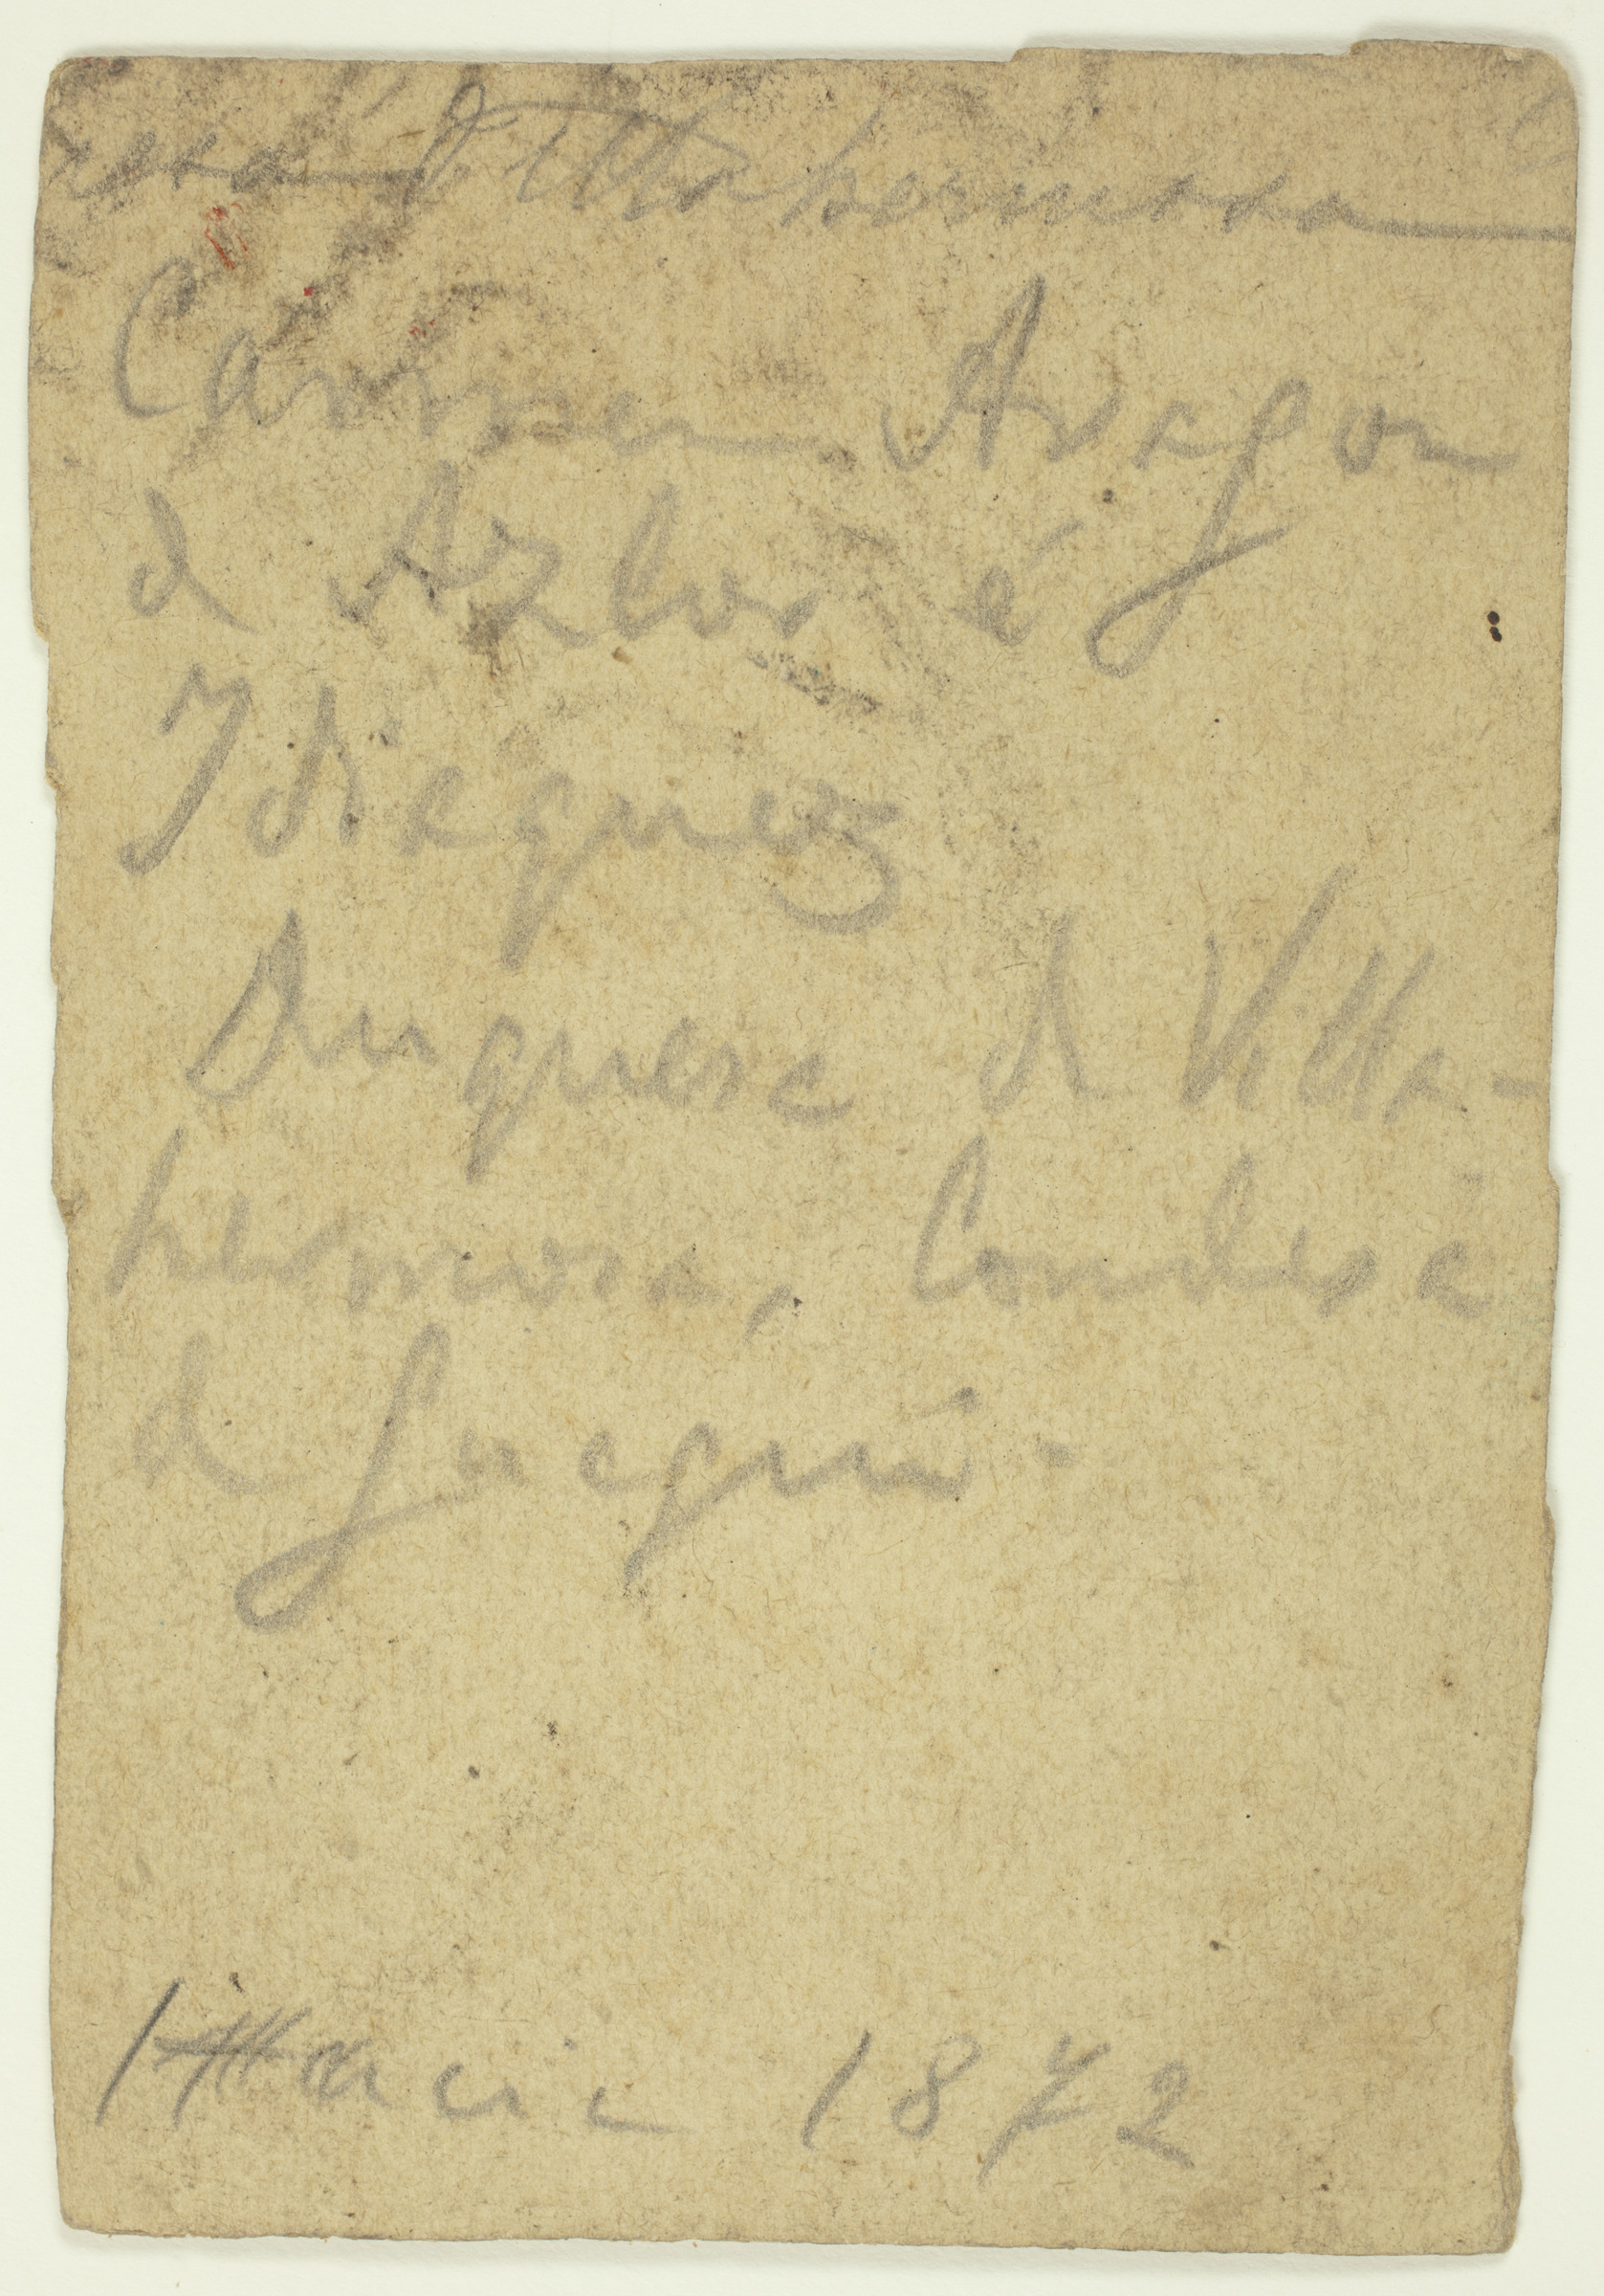 Villahermosa
Carmen Aragon
d Azlor é
Idiaquez
Duquesa d Villa-
hermosa, Condesa
d Guaqui.
Hacia 1872